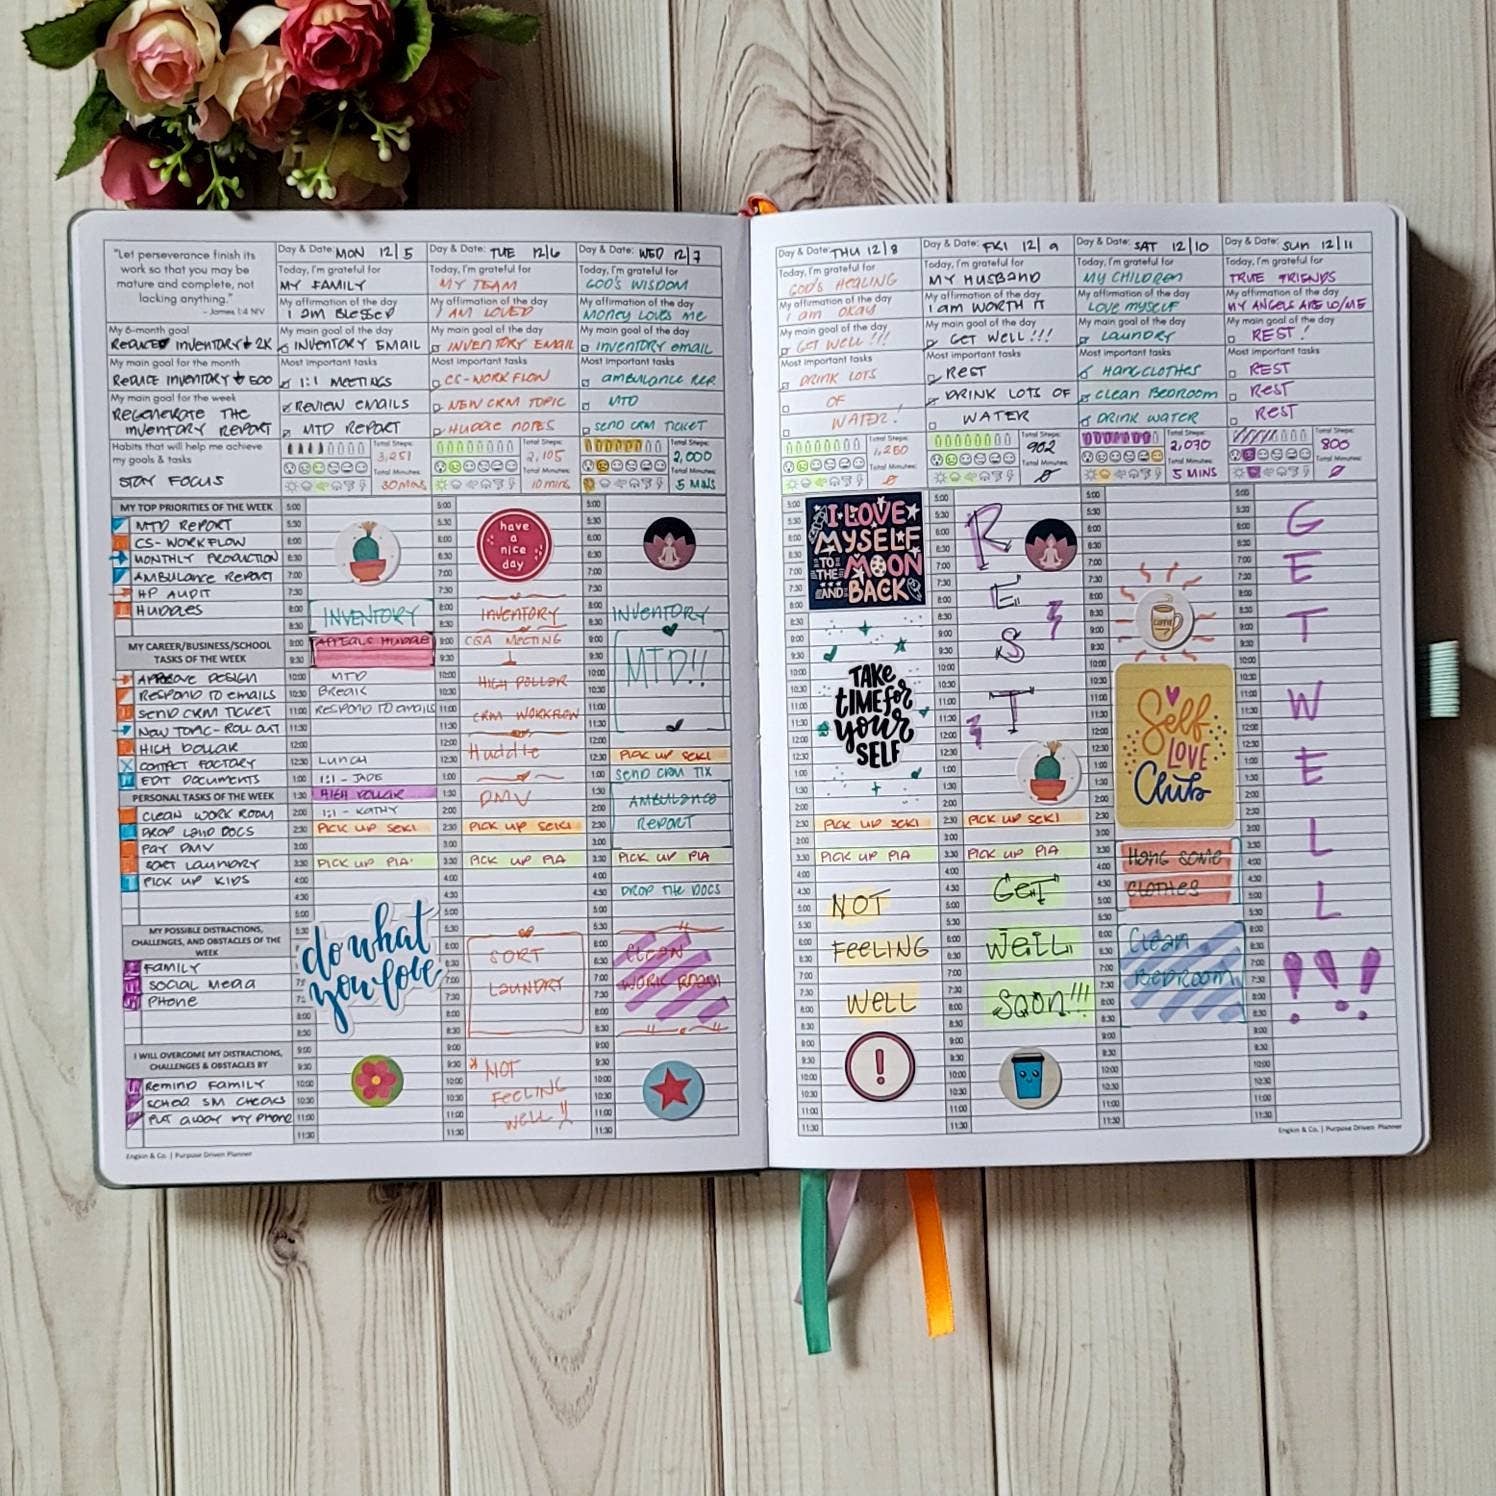 "Let perseverance finish its
work so that you may be
mature and complete, not
lacking anything."
- James 1:4 NIV
My 6-month goal
REDUCED INVENTORY 2K
My main goal for the month
REDUCE INVENTORY 500
My main goal for the week
REGENERATE THE
INVENTORY REPORT
Habits that will help me achieve
my goals & tasks
STAY FOCUS
MY TOP PRIORITIES OF THE WEEK
MTD REPORT
CS-WORKFLOW
MONTHLY PRODUCTION
AMBULANCE REPORT
HP AUDIT
HUDDLES
MY CAREER/BUSINESS/SCHOOL
TASKS OF THE WEEK
APPROVE DESIGN
RESPOND TO EMAILS
SEND CRM TICKET
NEW TOPIC-ROLL OUT
HIGH DOLLAR
CONTACT FACTORY
EDIT DOCUMENTS
PERSONAL TASKS OF THE WEEK
CLEAN WORK ROOM
DROP LAND DOCS
PAY DMV
SORT LAUNDRY
PICK UP KIDS
MY POSSIBLE DISTRACTIONS,
CHALLENGES, AND OBSTACLES OF THE
WEEK
FAMILY
SOCIAL MEDIA
PHONE
I WILL OVERCOME MY DISTRACTIONS,
CHALLENGES & OBSTACLES BY
REMIND FAMILY
SCHED SM CHECKS
PUT AWAY MY PHONE
Engkin & Co. | Purpose Driven Planner
Day & Date: MON 12/5
Today, I'm grateful for
MY FAMILY
My affirmation of the day
I am BLESSED
My main goal of the day
INVENTORY EMAIL
Most important tasks
1:1 MEETINGS
REVIEW EMAILS
MTD REPORT
Total Steps:
3,251
Total Minutes:
30 MINS
INVENTORY
APPEALS HUDDLE
MTD
BREAK
RESPOND TO EMAILS
LUNCH
1:1 - JADE
HIGH DOLLAR
1:1 - KATHY
PICK UP SEKI
PICK UP PIA
do what
you love
Day & Date: TUE 12/6
Today, I'm grateful for
MY TEAM
My affirmation of the day
I AM LOVED
My main goal of the day
INVENTORY EMAIL
Most important tasks
CS-WORKFLOW
NEW CRM TOPIC
HUDDLE NOTES
Total Steps:
2,105
Total Minutes:
10 mins
have
a
nice
day
INVENTORY
MEETING
HIGH DOLLAR
CRM WORKFLOW
Huddle
DMV
PICK UP SEKI
PICK UP PIA
SORT
LAUNDRY
* NOT
FEELING
WELL !!
Day & Date: WED 12/7
Today, I'm grateful for
GOD'S WISDOM
My affirmation of the day
MONEY LOVES ME
My main goal of the day
INVENTORY EMAIL
Most important tasks
AMBULANCE REP.
MTD
SEND CRM TICKET
Total Steps:
2,000
Total Minutes:
5 MINS
INVENTORY
MTD!!
PICK UP SEKI
SEND CRM TIX
AMBULANCE
REPORT
PICK UP PIA
DROP THE DOCS
CLEAN
WORK ROOM
Day & Date: THU 12/8
Today, I'm grateful for
GOD'S HEALING
My affirmation of the day
I am OKAY
My main goal of the day
GET WELL !!!
Most important tasks
DRINK LOTS
OF
WATER!
Total Steps:
1,250
Total Minutes:
I LOVE
MYSELF
TO
THE MOON
AND BACK
TAKE
TIME for
your
SELF
PICK UP SEKI
PICK UP PIA
NOT
FEELING
WELL
!
Day & Date: FRI 12/9
Today, I'm grateful for
MY HUSBAND
My affirmation of the day
I am WORTH IT
My main goal of the day
GET WELL!!!
Most important tasks
REST
DRINK LOTS OF
WATER
Total Steps:
902
Total Minutes:
R
E
S
T
PICK UP SEKI
PICK UP PIA
GET
WELL
SOON!!!
Day & Date: SAT 12/10
Today, I'm grateful for
MY CHILDREN
My affirmation of the day
LOVE MYSELF
My main goal of the day
LAUNDRY
Most important tasks
HANG CLOTHES
CLEAN BEDROOM
DRINK WATER
Total Steps:
2,070
Total Minutes:
5 MINS
COFFEE
Self
LOVE
Club
HANG SOME
CLOTHES
CLEAN
BEDROOM
Day & Date: SUN 12/11
Today, I'm grateful for
TRUE FRIENDS
My affirmation of the day
MY ANGELS ARE W/ME
My main goal of the day
REST!
Most important tasks
REST
REST
REST
Total Steps:
800
Total Minutes:
G
E
T
W
E
L
L
!!!
Engkin & Co. | Purpose Driven Planner